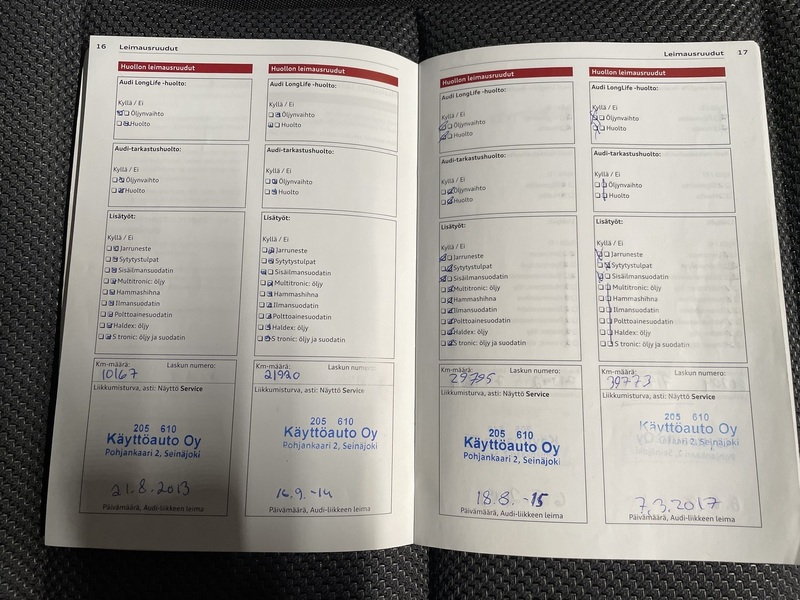 16 Leimausruudut
Huollon leimausruudut
Audi LongLife -huolto:
Kyllä / Ei
Öljynvaihto
Huolto
Audi-tarkastushuolto:
Kyllä / Ei
Öljynvaihto
Huolto
Lisätyöt:
Kyllä / Ei
Jarruneste
Sytytystulpat
Sisäilmansuodatin
Multitronic: öljy
Hammashihna
Ilmansuodatin
Polttoainesuodatin
Haldex: öljy
S tronic: öljy ja suodatin
Km-määrä: Laskun numero:
10167
Liikkumisturva, asti: Näyttö Service
205 610
Käyttöauto Oy
Pohjankaari 2, Seinäjoki
21.8.2013
Päivämäärä, Audi-liikkeen leima
Huollon leimausruudut
Audi LongLife -huolto:
Kyllä / Ei
Öljynvaihto
Huolto
Audi-tarkastushuolto:
Kyllä / Ei
Öljynvaihto
Huolto
Lisätyöt:
Kyllä / Ei
Jarruneste
Sytytystulpat
Sisäilmansuodatin
Multitronic: öljy
Hammashihna
Ilmansuodatin
Polttoainesuodatin
Haldex: öljy
S tronic: öljy ja suodatin
Km-määrä: Laskun numero:
21920
Liikkumisturva, asti: Näyttö Service
205 610
Käyttöauto Oy
Pohjankaari 2, Seinäjoki
16.9.-14
Päivämäärä, Audi-liikkeen leima
Leimausruudut 17
Huollon leimausruudut
Audi LongLife -huolto:
Kyllä / Ei
Öljynvaihto
Huolto
Audi-tarkastushuolto:
Kyllä / Ei
Öljynvaihto
Huolto
Lisätyöt:
Kyllä / Ei
Jarruneste
Sytytystulpat
Sisäilmansuodatin
Multitronic: öljy
Hammashihna
Ilmansuodatin
Polttoainesuodatin
Haldex: öljy
S tronic: öljy ja suodatin
Km-määrä: Laskun numero:
29795
Liikkumisturva, asti: Näyttö Service
205 610
Käyttöauto Oy
Pohjankaari 2, Seinäjoki
18.8. -15
Päivämäärä, Audi-liikkeen leima
Huollon leimausruudut
Audi LongLife -huolto:
Kyllä / Ei
Öljynvaihto
Huolto
Audi-tarkastushuolto:
Kyllä / Ei
Öljynvaihto
Huolto
Lisätyöt:
Kyllä / Ei
Jarruneste
Sytytystulpat
Sisäilmansuodatin
Multitronic: öljy
Hammashihna
Ilmansuodatin
Polttoainesuodatin
Haldex: öljy
S tronic: öljy ja suodatin
Km-määrä: Laskun numero:
39773
Liikkumisturva, asti: Näyttö Service
205 610
Käyttöauto Oy
Pohjankaari 2, Seinäjoki
7.3.2017
Päivämäärä, Audi-liikkeen leima